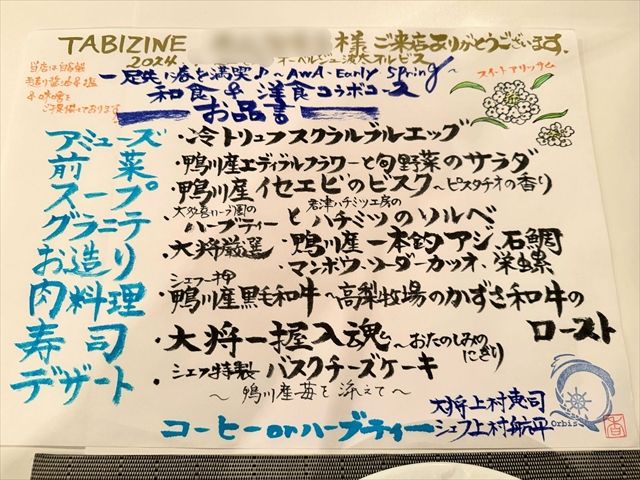 TABIZINE 様 ご来店ありがとうございます。
2024 オーベルジュ波奈オルビス
スイートアリッサム
一足先に春を満喫♪~AWA-Early Spring~
和食&洋食コラボコース
お品書
アミューズ ・冷トリュフスクランブルエッグ
前菜 ・鴨川産エディブルフラワーと旬野菜のサラダ
スープ ・鴨川産イセエビのビスク~ピスタチオの香り
グラニテ ・大多喜ハーブ園のハーブティーと君津ハチミツ工房のハチミツのソルベ
お造り ・大将厳選 鴨川産一本釣アジ、石鯛
マンボウ、ソーダーカツオ、栄螺
肉料理 ・シェフ一押 鴨川産黒毛和牛~高梨牧場のかずさ和牛の
ロースト
寿司 ・大将一握入魂~おたのしみのにぎり
デザート ・シェフ特製 バスクチーズケーキ
~鴨川産苺を添えて~
コーヒーorハーブティー
大将上村恵司
シェフ上村航平
Orbis